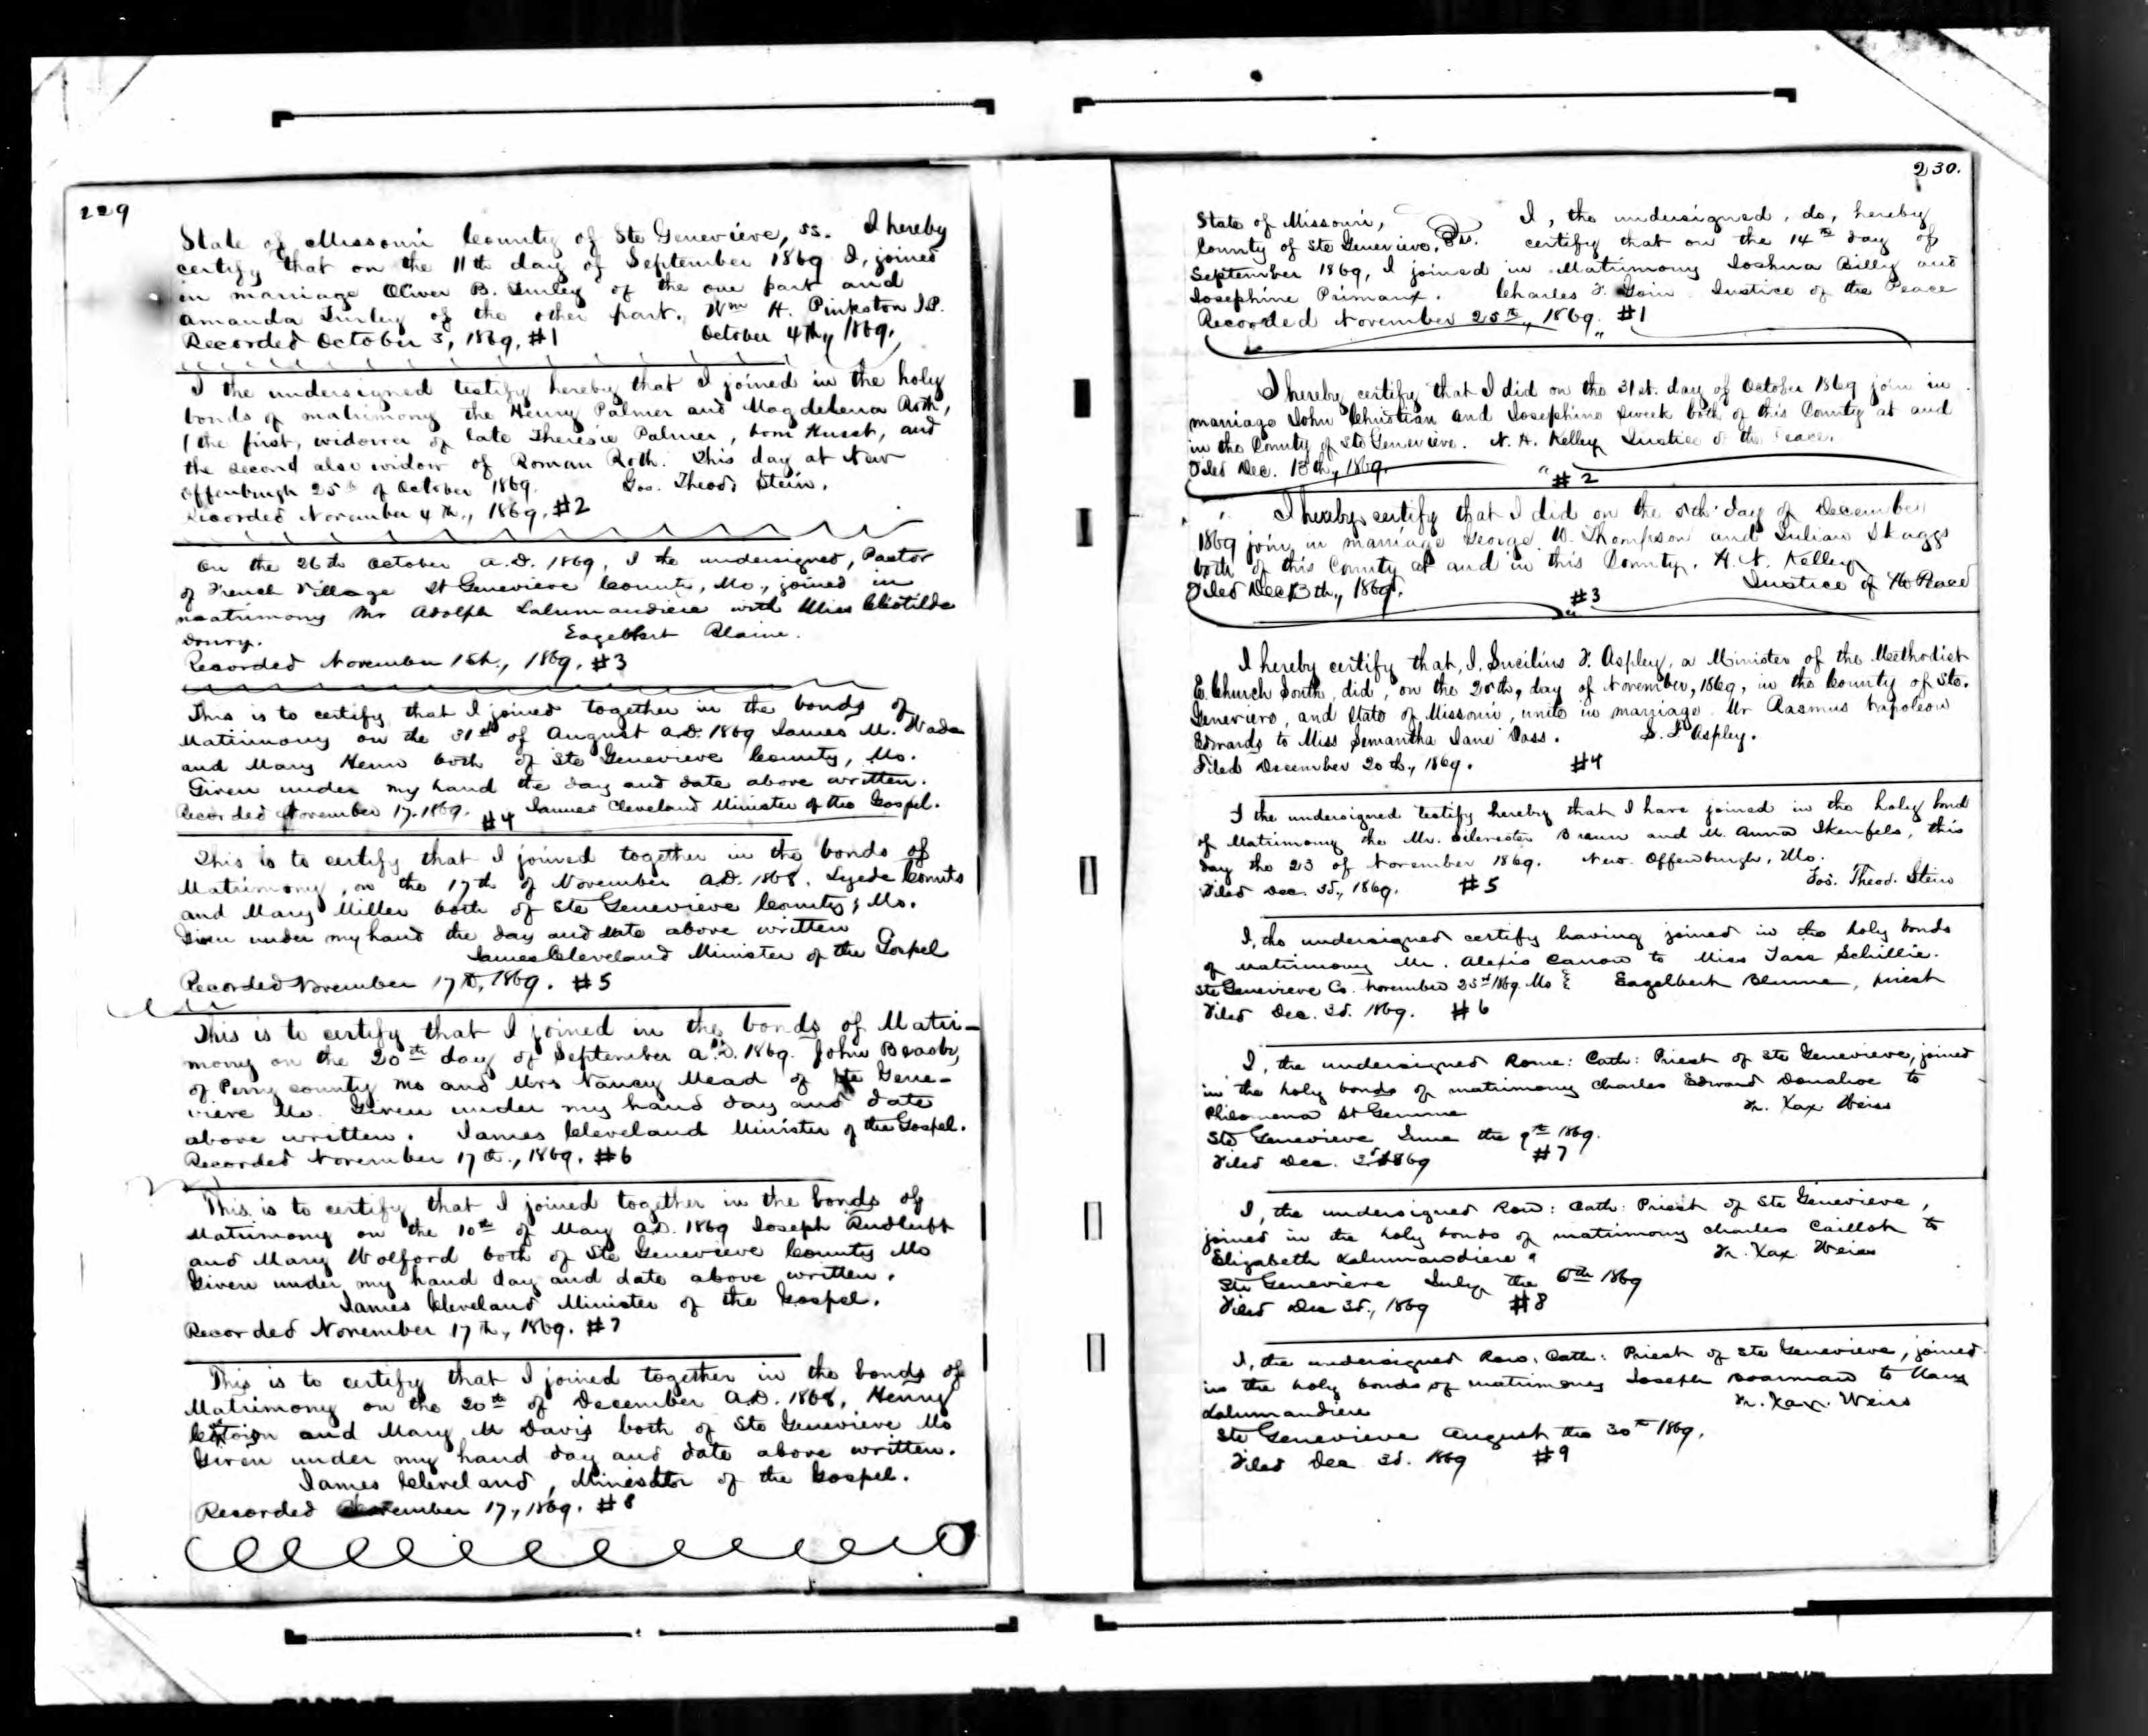 229
State of Missouri County of Ste Genevieve, ss. I hereby
certify that on the 11th day of September 1869 I, joined
in marriage Oliver B. Turley of the one part and
Amanda Turley of the other part. Wm H. Pinkston J.P.
Recorded October 3, 1869, #1 October 4th, 1869,
I the undersigned testify hereby that I joined in the holy
bonds of matrimony the Henry Palmer and Magdelena Roth,
(the first, widower of late Theresie Palmer, born Husst, and
the second also widow of Roman Roth. This day at New
Offenburgh 25th of October 1869. Jos. Theod. Stein.
Recorded November 4th., 1869, #2
On the 26th October A.D. 1869, I the undersigned, Pastor
of French Village St Genevieve County, Mo., joined in
matrimony Mr Adolph Lalumandiere with Miss Clotilde
Drury. Eagelbert
Recorded November 15th., 1869, #3
This is to certify that I joined together in the bonds of
Matrimony on the 31st of August A.D. 1869 James M. Wade
and Mary Henn both of Ste Genevieve County, Mo.
Given under my hand the day and date above written.
Recorded November 17. 1869. #4 James Cleveland Minister of the Gospel.
This is to certify that I joined together in the bonds of
Matrimony, on the 17th of November A.D. 1868. Counts
and Mary Miller both of Ste Genevieve County, Mo.
Given under my hand the day and date above written
James Cleveland Minister of the Gospel
Recorded November 17th, 1869. #5
This is to certify that I joined in the bonds of Matri-
mony on the 20th day of September A.D. 1869. John
of Perry county Mo and Mrs Nancy Mead of Ste Gene-
vieve Mo. Given under my hand day and date
above written. James Cleveland Minister of the Gospel.
Recorded November 17th., 1869. #6
This is to certify that I joined together in the bonds of
Matrimony on the 10th of May A.D. 1869 Joseph Rudluft
and Mary Wolford both of Ste Genevieve County Mo
Given under my hand day and date above written.
James Cleveland Minister of the Gospel.
Recorded November 17th., 1869. #7
This is to certify that I joined together in the bonds of
Matrimony on the 20th of December A.D. 1868, Henry
and Mary M Davis both of Ste Genevieve Mo
Given under my hand day and date above written.
James Cleveland, Minister of the Gospel.
Recorded November 17, 1869. #8
230.
State of Missouri, I, the undersigned, do, hereby
County of Ste Genevieve, ss. certify that on the 14th day of
September 1869, I joined in Matrimony Joshua Billy and
Josephine Primaux. Charles F. Goin Justice of the Peace
Recorded November 25th, 1869. #1
I hereby certify that I did on the 31st. day of October 1869 join in
marriage John Christian and Josephine Sweek both of this County at and
in the County of Ste Genevieve. N. H. Kelley Justice of the Peace.
Filed Dec. 13th, 1869.
#2
I hereby certify that I did on the 5th day of December
1869 join in marriage George W. Thompson and Julian Skaggs
both of this County at and in this County. H. N. Kelley
Filed Dec 13th, 1869. Justice of the Peace
#3
I hereby certify that, I, Lucilius F. Aspley, a Minister of the Methodist
E. Church South, did, on the 28th, day of November, 1869, in the County of Ste.
Genevieve, and State of Missouri, unite in marriage Mr Rasmus Napoleon
Edwards to Miss Semantha Jane Doss. L. F. Aspley.
Filed December 20th, 1869. #4
I the undersigned testify hereby that I have joined in the holy bond
of Matrimony the Mr. Silvester Braun and M. Anna Ikenfels, this
day the 23 of November 1869. New. Offenburgh, Mo.
Filed Dec. 3d., 1869. #5 Jos. Theod. Stein
I, the undersigned certify having joined in the holy bonds
of Matrimony Mr. Alexis Caron to Miss Schillie.
Ste Genevieve Co. November 23rd 1869. Mo Eagelbert Blume, priest
Filed Dec. 3d. 1869. #6
I, the undersigned Rome: Cath: Priest of Ste Genevieve, joined
in the holy bonds of matrimony Charles Edward Donahoe to
Philomena St Gemme Fr. Xax Weiss
Ste Genevieve June the 9th 1869.
Filed Dec. 3d 1869 #7
I, the undersigned Rom: Cath: Priest of Ste Genevieve,
joined in the holy bonds of matrimony Charles Caillot to
Elizabeth Lalumandiere Fr. Xax Weiss
Ste Genevieve July the 6th 1869
Filed Dec 3d., 1869 #8
I, the undersigned Rom. Cath: Priest of Ste Genevieve, joined
in the holy bonds of matrimony Joseph Boarman to Mary
Lalumandiere Fr. Xav. Weiss
Ste Genevieve August the 30th 1869.
Filed Dec 3d. 1869 #9